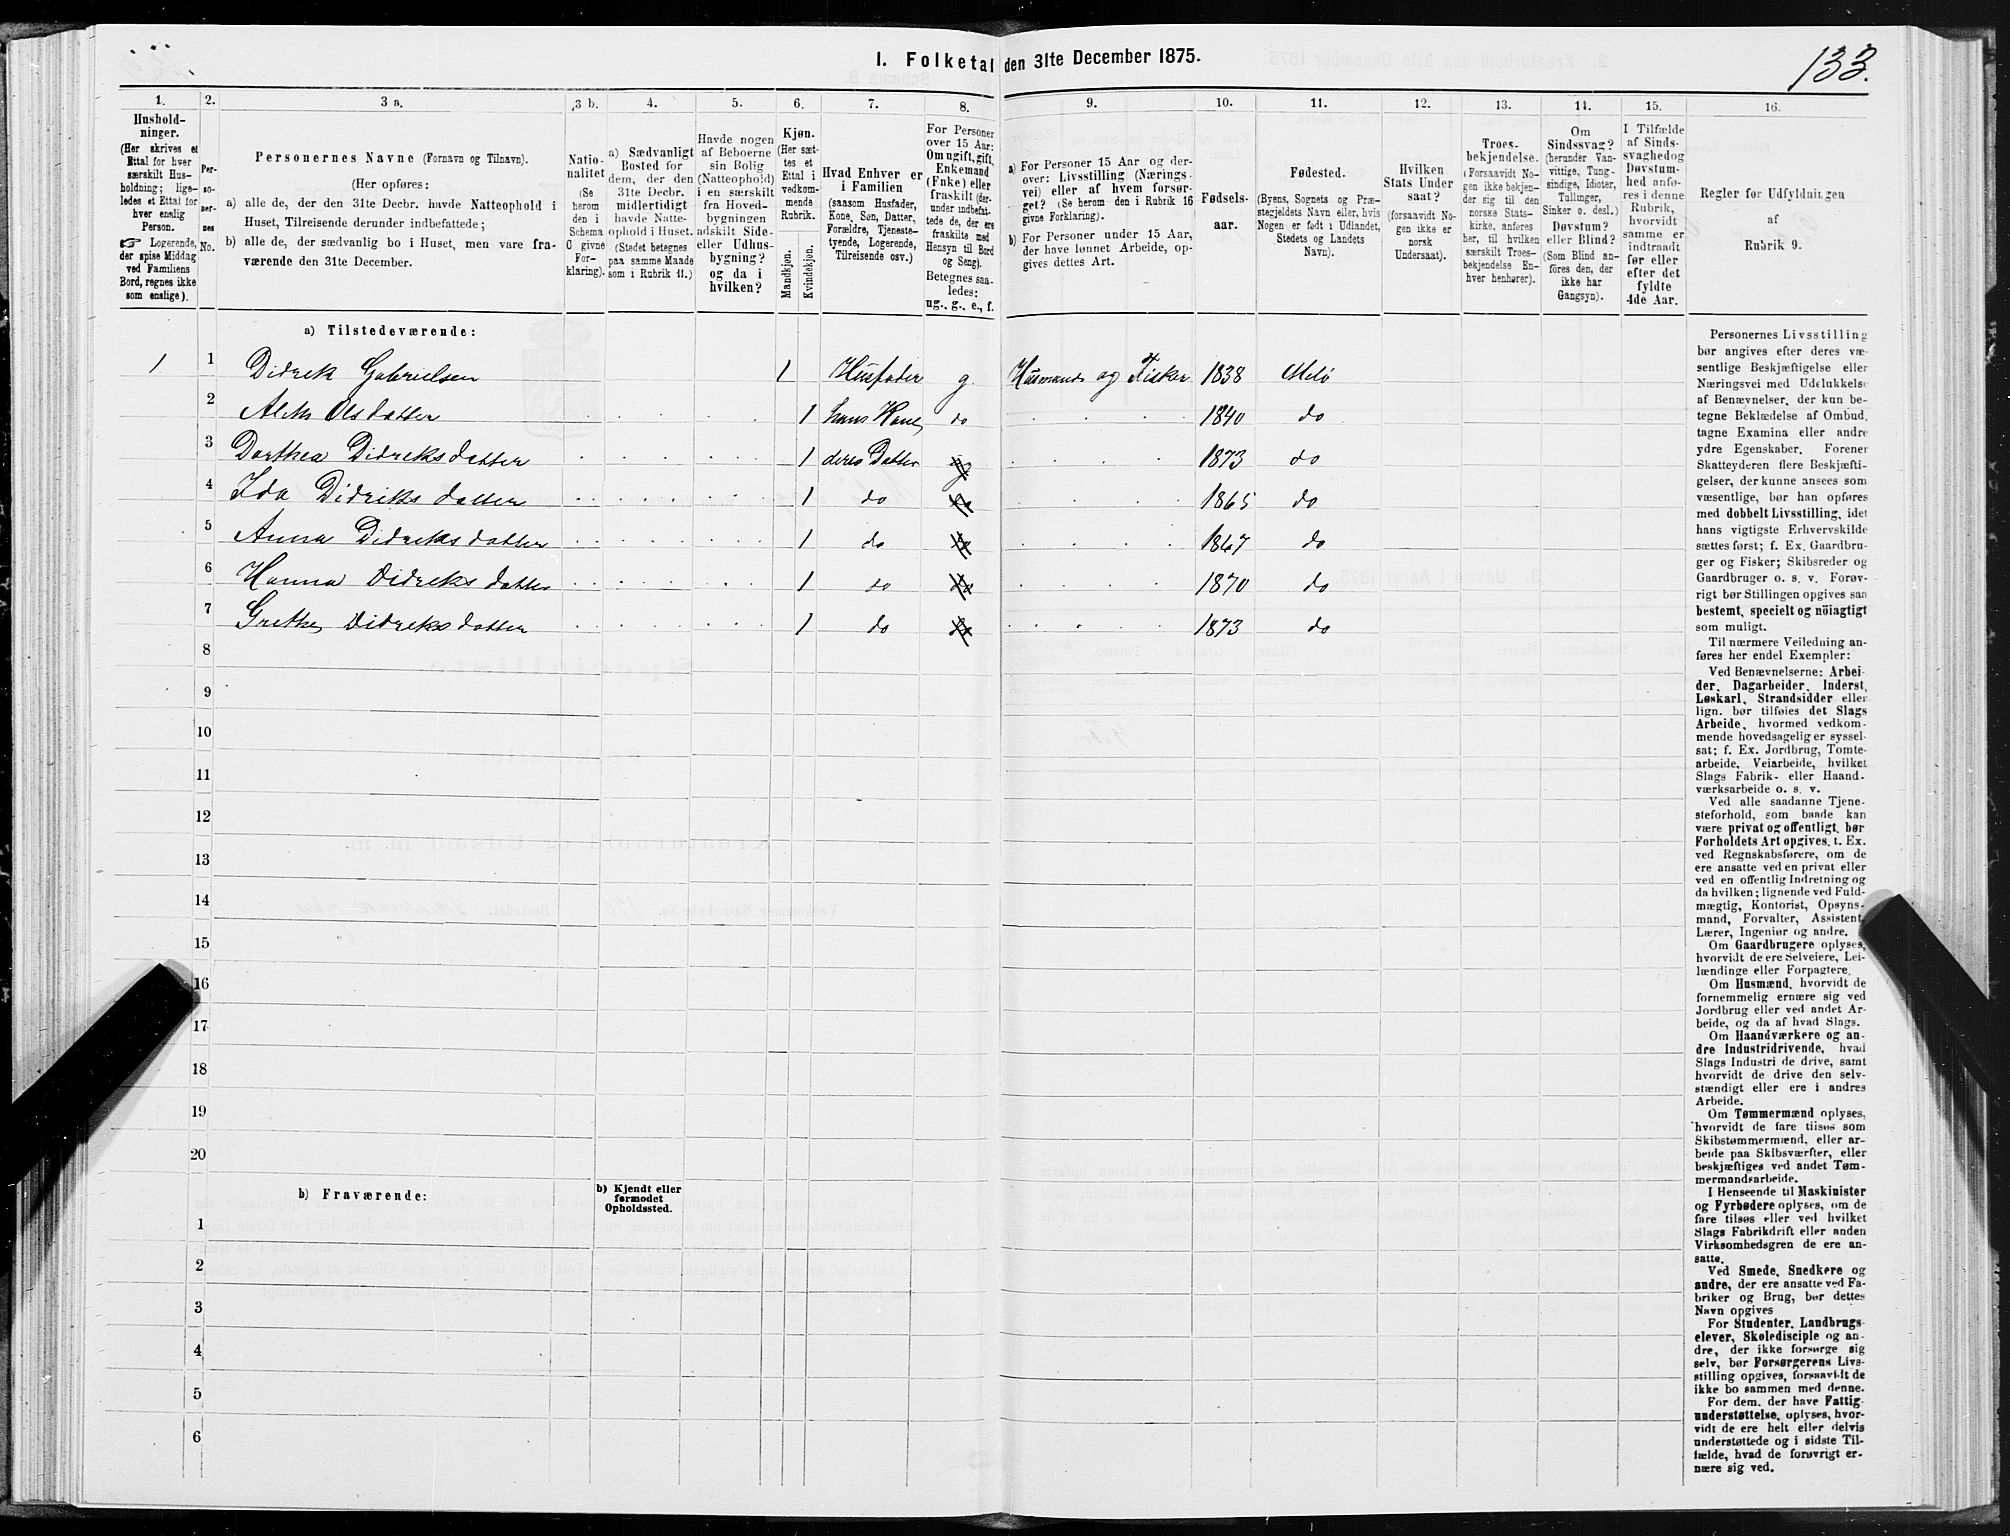 1. Folketal den 31te December 1875.
133.
1.
2.
3 a.
3 b.
4.
5.
6.
7.
8.
9.
10.
11.
12.
13.
14.
15.
16.
Hushold-
ninger.
(Her skrives et
Ettal for hver
særskilt Hus-
holdning; lige-
ledes et Ettal for
hver enslig
Person.
☞ Logerende,
der spise Middag
ved Familiens
Bord, regnes ikke
som enslige).
Per-
so-
ner-
nes
No.
Personernes Navne (Fornavn og Tilnavn).
(Her opføres:
a) alle de, der den 31te Decbr. havde Natteophold i
Huset, Tilreisende derunder indbefattede;
b) alle de, der sædvanlig bo i Huset, men vare fra-
værende den 31te December.
Natio-
nalitet
(Se
herom
den i
Schema
C givne
For-
klaring).
a) Sædvanligt
Bosted for
dem, der den
31te Decbr.
midlertidigt
havde Natte-
ophold i Huset.
(Stedet betegnes
paa samme Maade
som i Rubrik 11.)
Havde nogen
af Beboerne
sin Bolig
(Natteophold)
i en særskilt
fra Hoved-
bygningen
adskilt Side-
eller Udhus-
bygning?
og da i
hvilken?
Kjøn.
(Her sæt-
tes et
Ettal i
vedkom-
mende
Rubrik.
Mandkjøn.
Kvindekjøn.
Hvad Enhver er
i Familien
(saasom Husfader,
Kone, Søn, Datter,
Forældre, Tjeneste-
tyende, Logerende,
Tilreisende osv.)
For Personer
over 15 Aar:
Om ugift, gift,
Enkemand
(Enke) eller
fraskilt (der-
under indbefat-
tede de, der ere
fraskilte med
Hensyn til Bord
og Seng).
Betegnes saa-
ledes:
ug., g., e., f.
a) For Personer 15 Aar og der-
over: Livsstilling (Nærings-
vei) eller af hvem forsør-
get? (Se herom den i Rubrik 16
givne Forklaring).
b) For Personer under 15 Aar,
der have lønnet Arbeide, op-
gives dettes Art.
Fødsels-
aar.
Fødested.
(Byens, Sognets og Præ-
stegjeldets Navn eller, hvis
Nogen er født i Udlandet,
Stedets og Landets
Navn).
Hvilken
Stats Under
saat?
(forsaavidt No-
gen ikke er
norsk
Undersaat).
Troes-
bekjendelse.
(Forsaavidt No-
gen ikke bekjen-
der sig til den
norske Stats-
kirke, anføres
her, til hvilken
særskilt Troes-
bekjendelse En-
hver henhører).
Om
Sindssvag?
(herunder Van-
vittige, Tung-
sindige, Idioter,
Tullinger,
Sinker o. desl.)
Døvstum?
eller Blind?
(Som Blind an-
føres den, der
ikke har
Gangsyn).
I Tilfælde
af Sinds-
svaghed og
Døvstum-
hed anfø-
res i denne
Rubrik,
hvorvidt
samme er
indtraadt
før eller
efter det
fyldte
4de Aar.
Regler for Udfyldningen
af
Rubrik 9.
a) Tilstedeværende:
1 1 Didrek Gabrielsen 1 Husfader g. Husmand og Fisker 1838 Melö
2 Aleth Olsdatter 1 hans Kone do 1840 do
3 Dorthea Didreksdatter 1 deres Datter 1873 do
4 Ida Didriksdatter 1 do do 1865 do
5 Anna Didreksdatter 1 do do 1867 do
6 Hanna Didreksdatter 1 do do 1870 do
7 Grethe Didreksdatter 1 do do 1873 do
8
9
10
11
12
13
14
15
16
17
18
19
20
b) Fraværende:
b) Kjendt eller
formodet
Opholdssted.
1
2
3
4
5
6
Personernes Livsstilling
bør angives efter deres væ-
sentlige Beskjæftigelse eller
Næringsvei med Udelukkelse
af Benævnelser, der kun be-
tegne Beklædelse af Ombud,
tagne Examina eller andre
ydre Egenskaber. Forener
Skatteyderen flere Beskjæfti-
gelser, der kunne ansees som
væsentlige, bør han opføres
med dobbelt Livsstilling, idet
hans vigtigste Erhvervskilde
sættes først; f. Ex. Gaardbru-
ger og Fisker; Skibsreder og
Gaardbruger o. s. v. Forøv-
rigt bør Stillingen opgives saa
bestemt, specielt og nöiagtigt
som muligt.
Til nærmere Veiledning an-
føres her endel Exempler:
Ved Benævnelserne: Arbei-
der, Dagarbeider, Inderst,
Løskarl, Strandsidder eller
lign. bør tilføies det Slags
Arbeide, hvormed vedkom-
mende hovedsagelig er syssel-
sat; f. Ex. Jordbrug, Tomte-
arbeide, Veiarbeide, hvilket
Slags Fabrik- eller Haand-
værksarbeide o. s. v.
Ved alle saadanne Tjene-
steforhold, som baade kan
være privat og offentligt, bør
Forholdets Art opgives, f. Ex.
ved Regnskabsførere, om de
ere ansatte ved en privat eller
ved en offentlig Indretning og
da hvilken; lignende ved Fuld-
mægtig, Kontorist, Opsyns-
mand, Forvalter, Assistent,
Lærer, Ingeniør og andre.
Om Gaardbrugere oplyses,
hvorvidt de ere Selveiere, Lei-
lændinge eller Forpagtere.
Om Husmænd, hvorvidt de
fornemmelig ernære sig ved
Jordbrug eller ved andet Ar-
beide, og da af hvad Slags.
Om Haandværkere og an-
dre Industridrivende, hvad
Slags Industri de drive, samt
hvorvidt de drive den selv-
stændigt eller ere i andres
Arbeide.
Om Tømmermænd oplyses,
hvorvidt de fare tilsøs som
Skibstømmermænd, eller ar-
beide paa Skibsværfter, eller
beskjæftiges ved andet Tøm-
mermandsarbeide.
I Henseende til Maskinister
og Fyrbødere oplyses, om de
fare tilsøs eller ved hvilket
Slags Fabrikdrift eller anden
Virksomhedsgren de ere an-
satte.
Ved Smede, Snedkere og
andre, der ere ansatte ved Fa-
briker og Brug, bør dettes
Navn opgives
For Studenter, Landbrugs-
elever, Skoledisciple og an-
dre, der ikke forsørge sig
selv, bør Forsørgerens Livs-
stilling opgives, forsaavidt de
ikke bo sammen med denne.
For dem, der have Fattig-
understøttelse, oplyses, hvor-
vidt de ere helt eller delvis
understøttede og i sidste Til-
fælde, hvad de forøvrigt er-
nære sig ved.